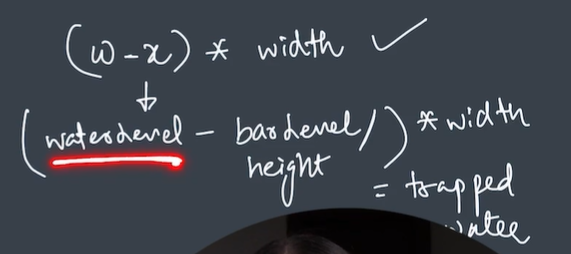 (w-x) * width ✓
↓
(waterlevel - barlevel/height) * width
= trapped
water